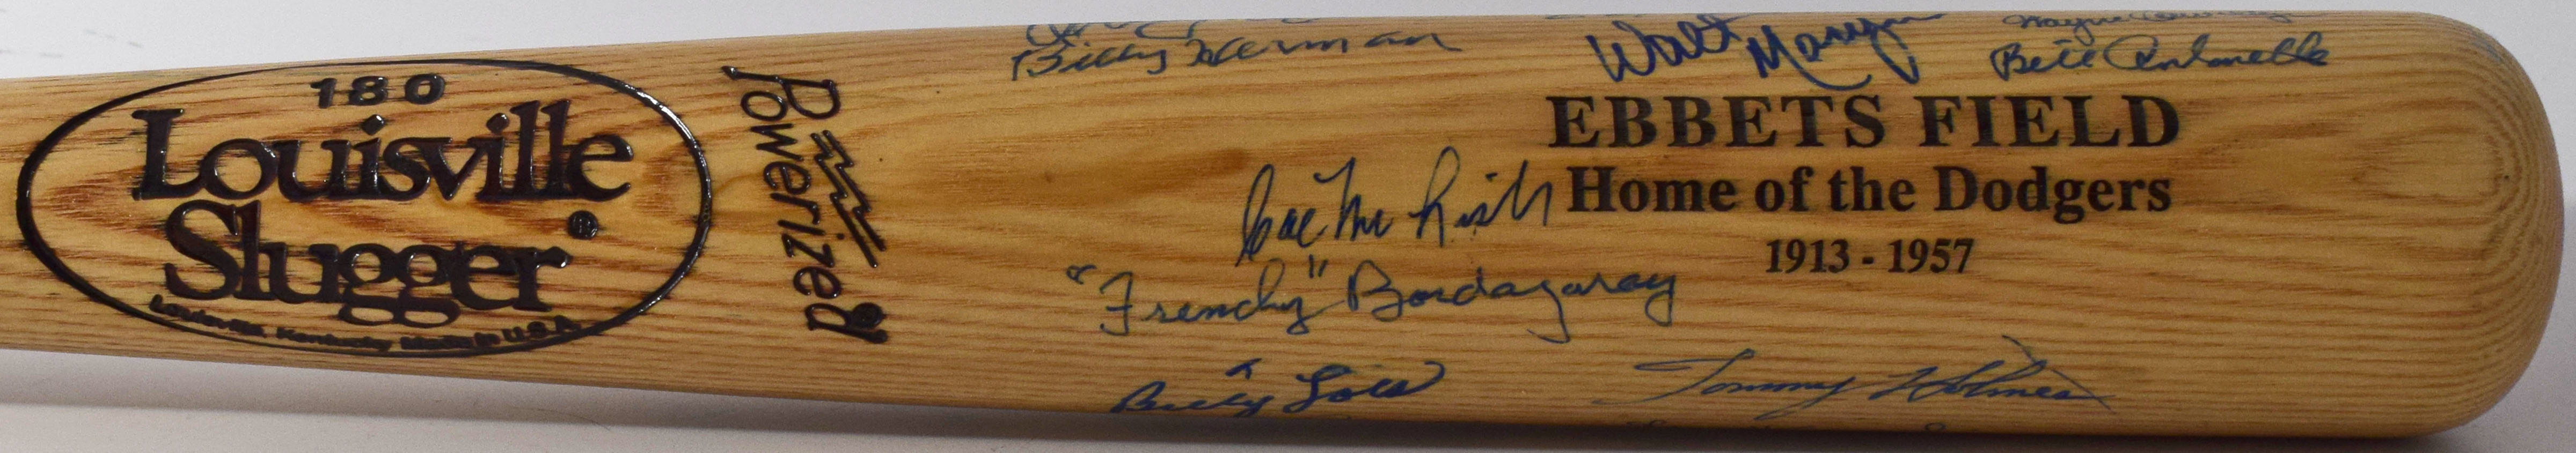 180
Louisville
Slugger®
Louisville, Kentucky Made in U.S.A.
Powerized
Billy Herman
Walt Moryn
Wayne
Bill Antonello
EBBETS FIELD
Home of the Dodgers
1913 - 1957
Cal McLish
"Frenchy" Bordagaray
Billy Loes
Tommy Holmes